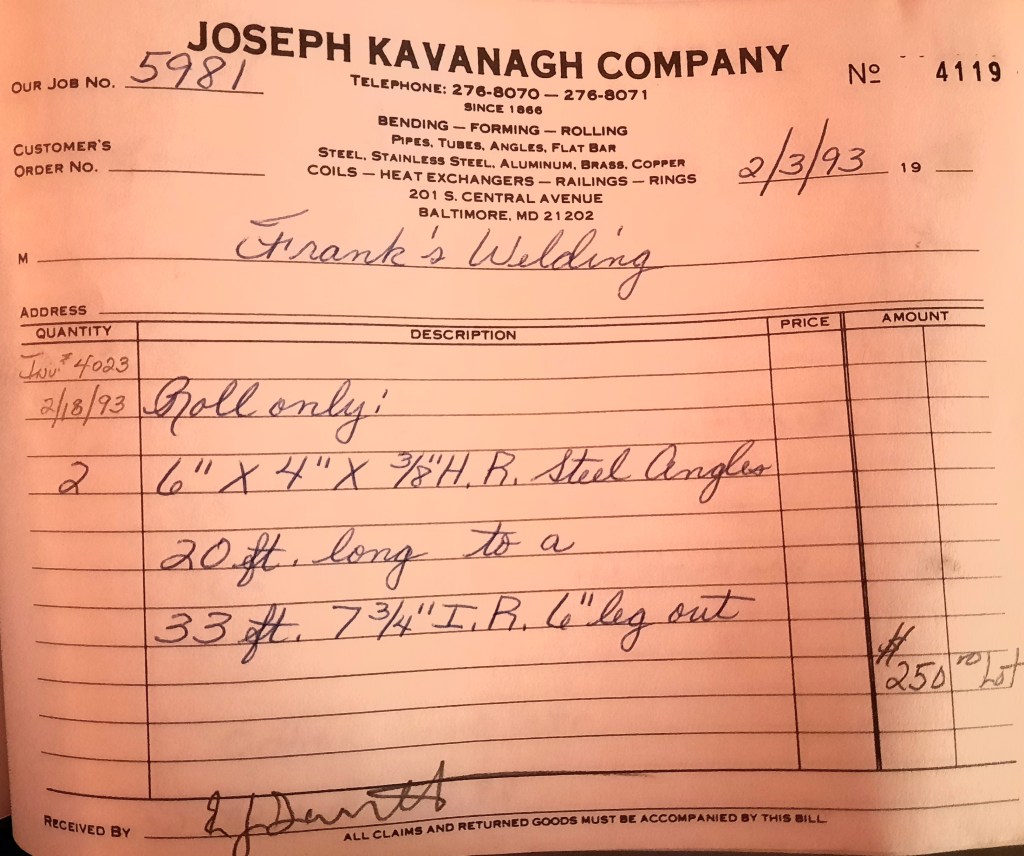 JOSEPH KAVANAGH COMPANY
OUR JOB NO. 5981
TELEPHONE: 276-8070 — 276-8071
Nº 4119
SINCE 1866
BENDING — FORMING — ROLLING
PIPES, TUBES, ANGLES, FLAT BAR
CUSTOMER'S
ORDER NO.
STEEL, STAINLESS STEEL, ALUMINUM, BRASS, COPPER
COILS — HEAT EXCHANGERS — RAILINGS — RINGS
2/3/93 19
201 S. CENTRAL AVENUE
BALTIMORE, MD 21202
M Frank's Welding
ADDRESS
QUANTITY DESCRIPTION PRICE AMOUNT
Inv.# 4023
2/18/93 Roll only:
2 6" X 4" X 3/8" H.R. Steel Angles
20 ft. long to a
33 ft. 7 3/4" I.R. 6" leg out
$250 no Lot
RECEIVED BY
ALL CLAIMS AND RETURNED GOODS MUST BE ACCOMPANIED BY THIS BILL